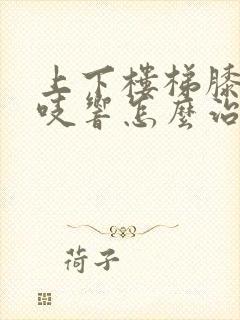 上下樓梯膝
吱響怎麼治
荷子